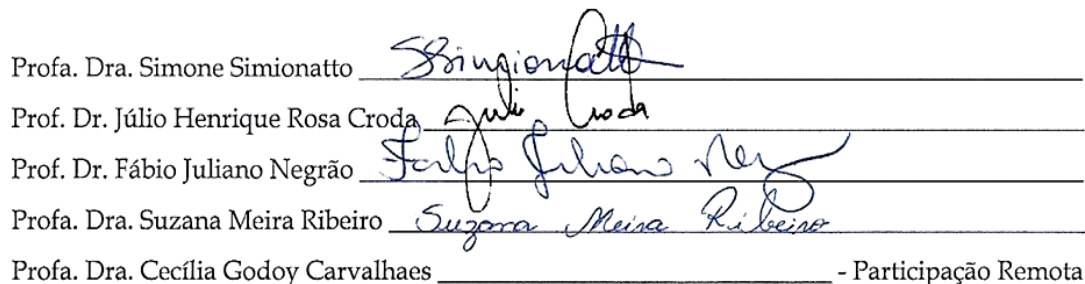 Profa. Dra. Simone Simionatto SSimionatto
Prof. Dr. Júlio Henrique Rosa Croda Julio Croda
Prof. Dr. Fábio Juliano Negrão Fabio Juliano Neg
Profa. Dra. Suzana Meira Ribeiro Suzana Meira Ribeiro
Profa. Dra. Cecília Godoy Carvalhaes - Participação Remota